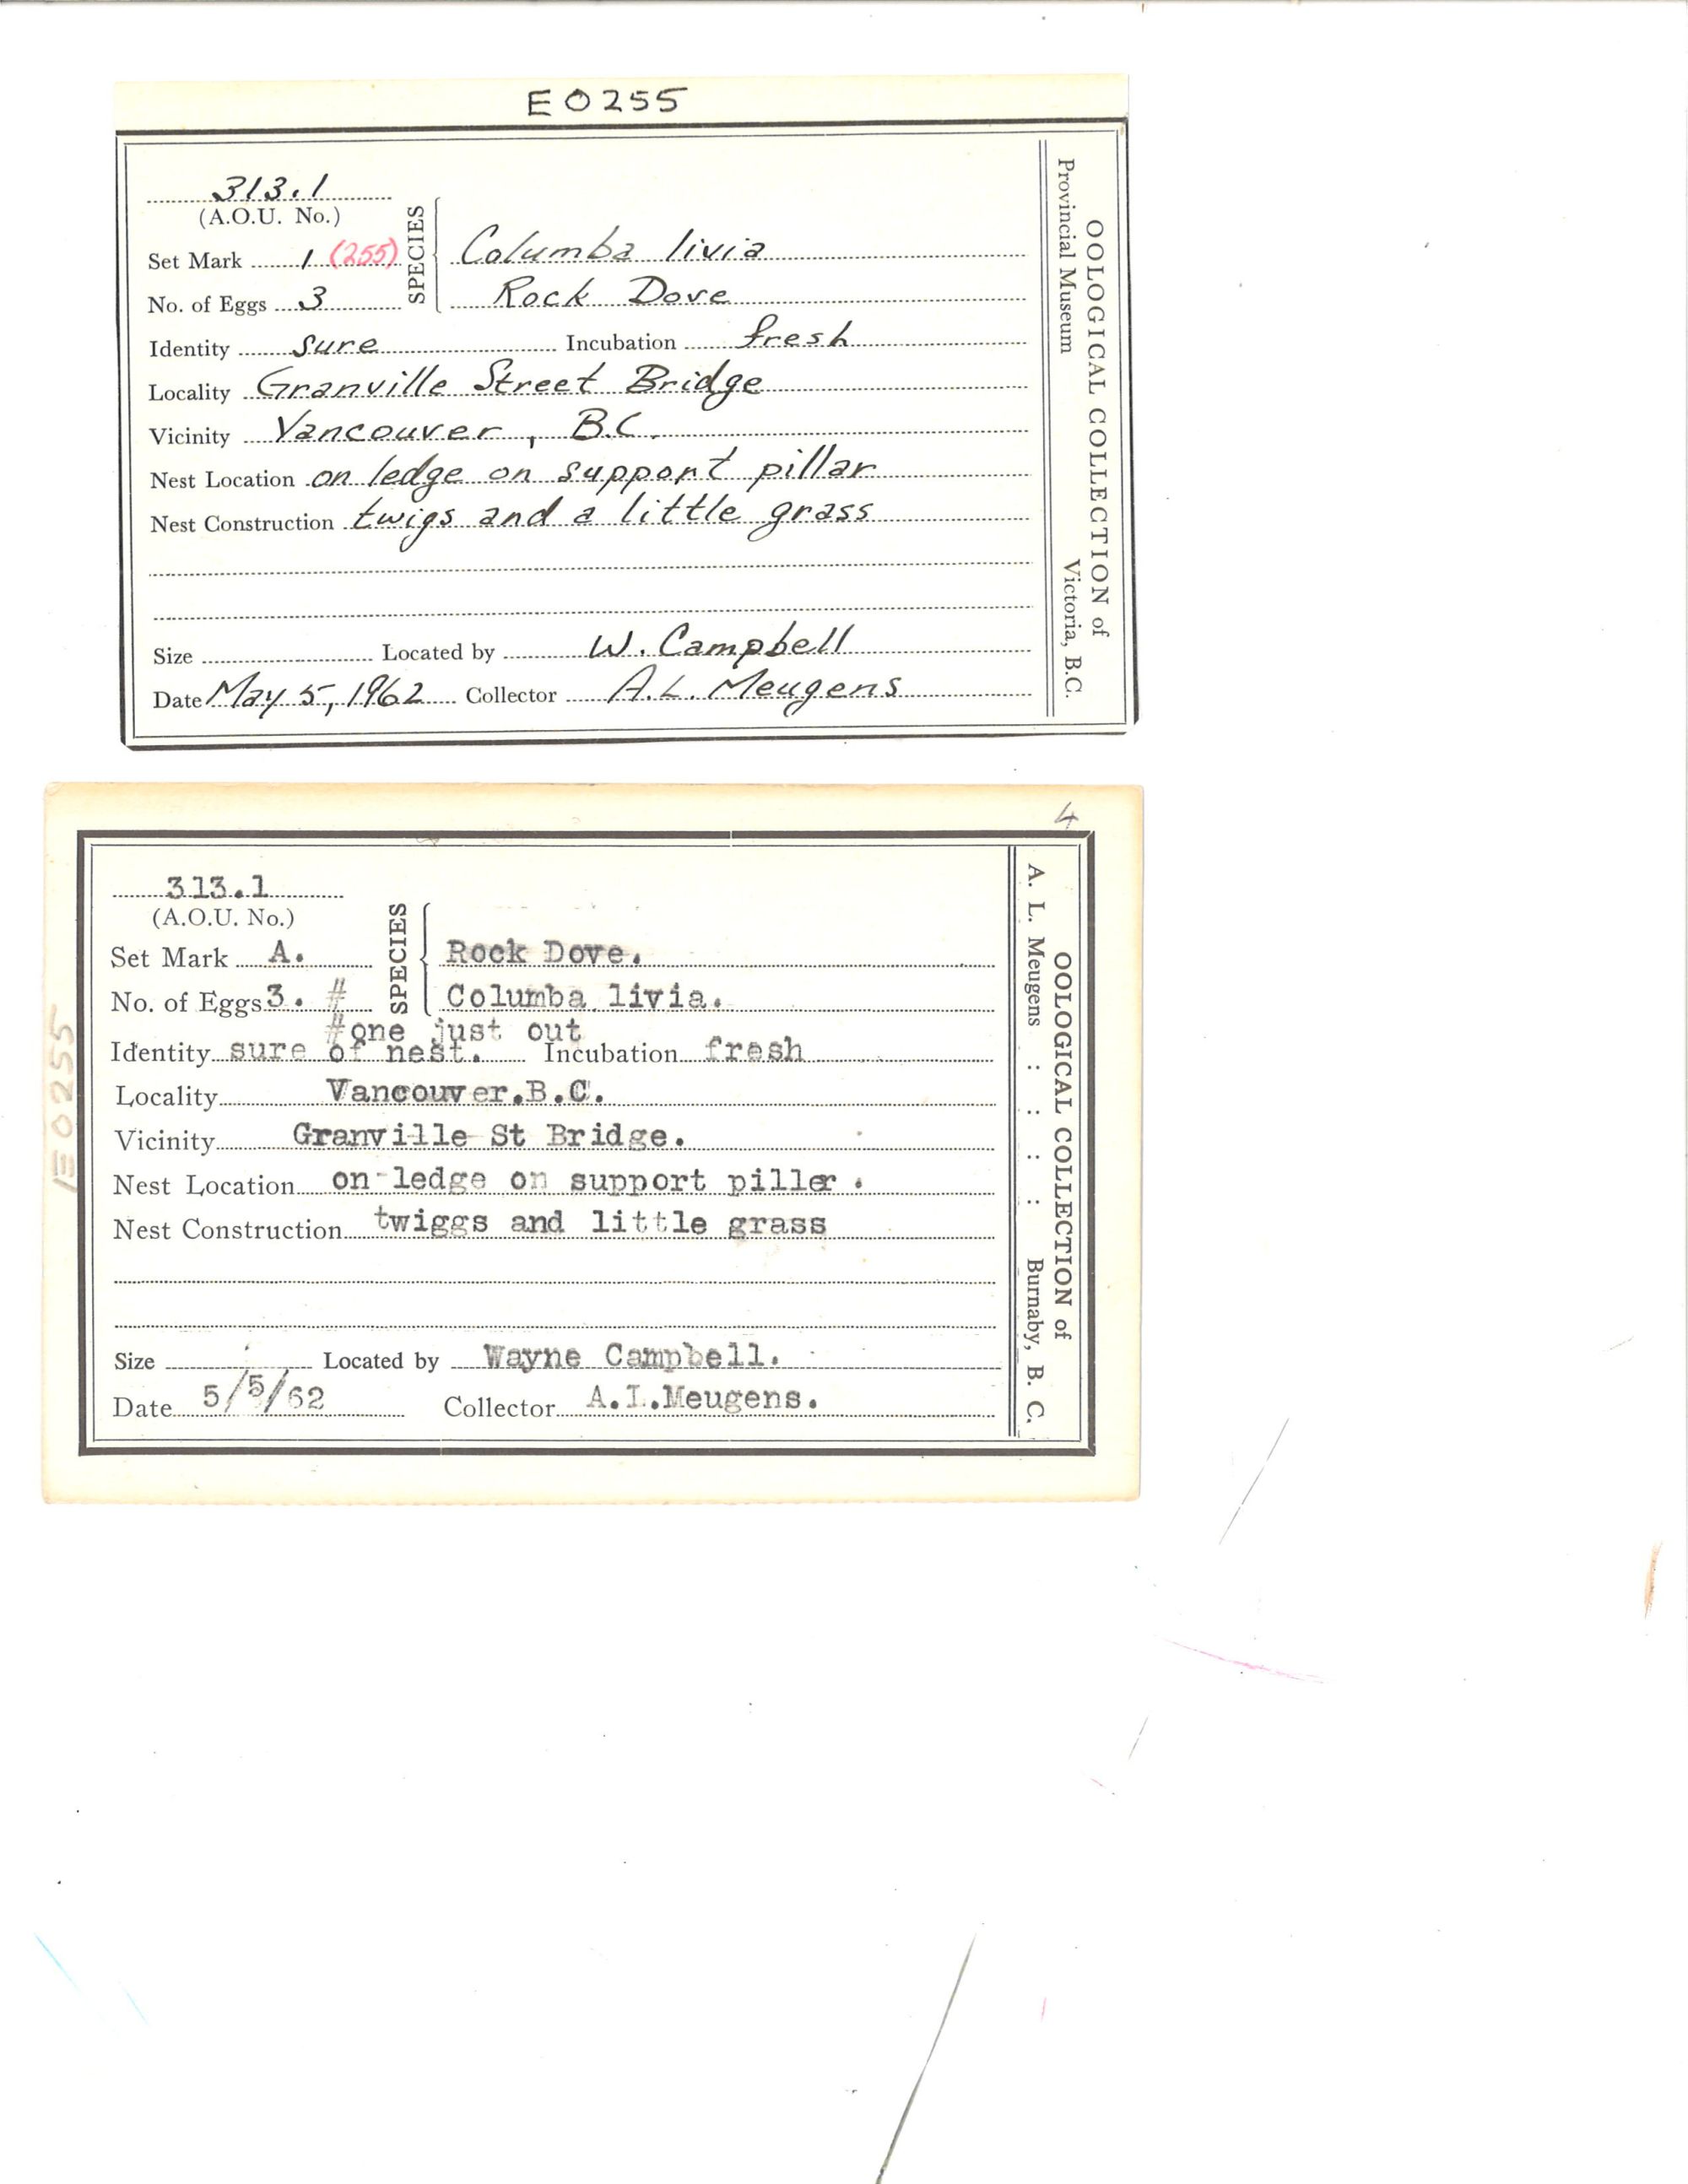 E0255
313.1
(A.O.U. No.)
SPECIES
Set Mark 1 (255) Columba livia
No. of Eggs 3 Rock Dove
Identity sure Incubation fresh
Locality Granville Street Bridge
Vicinity Vancouver, B.C.
Nest Location on ledge on support pillar
Nest Construction twigs and a little grass
Size Located by W. Campbell
Date May 5, 1962 Collector A.L. Meugens
OOLOGICAL COLLECTION of
Provincial Museum Victoria, B.C.
4
E0255
313.1
(A.O.U. No.)
SPECIES
Set Mark A. Rock Dove.
No. of Eggs 3. # Columba livia.
#one just out
Identity sure of nest. Incubation fresh
Locality Vancouver.B.C.
Vicinity Granville St Bridge.
Nest Location on ledge on support piller .
Nest Construction twiggs and little grass
Size Located by Wayne Campbell.
Date 5/5/62 Collector A.L.Meugens.
OOLOGICAL COLLECTION of
A. L. Meugens : : : : Burnaby, B. C.